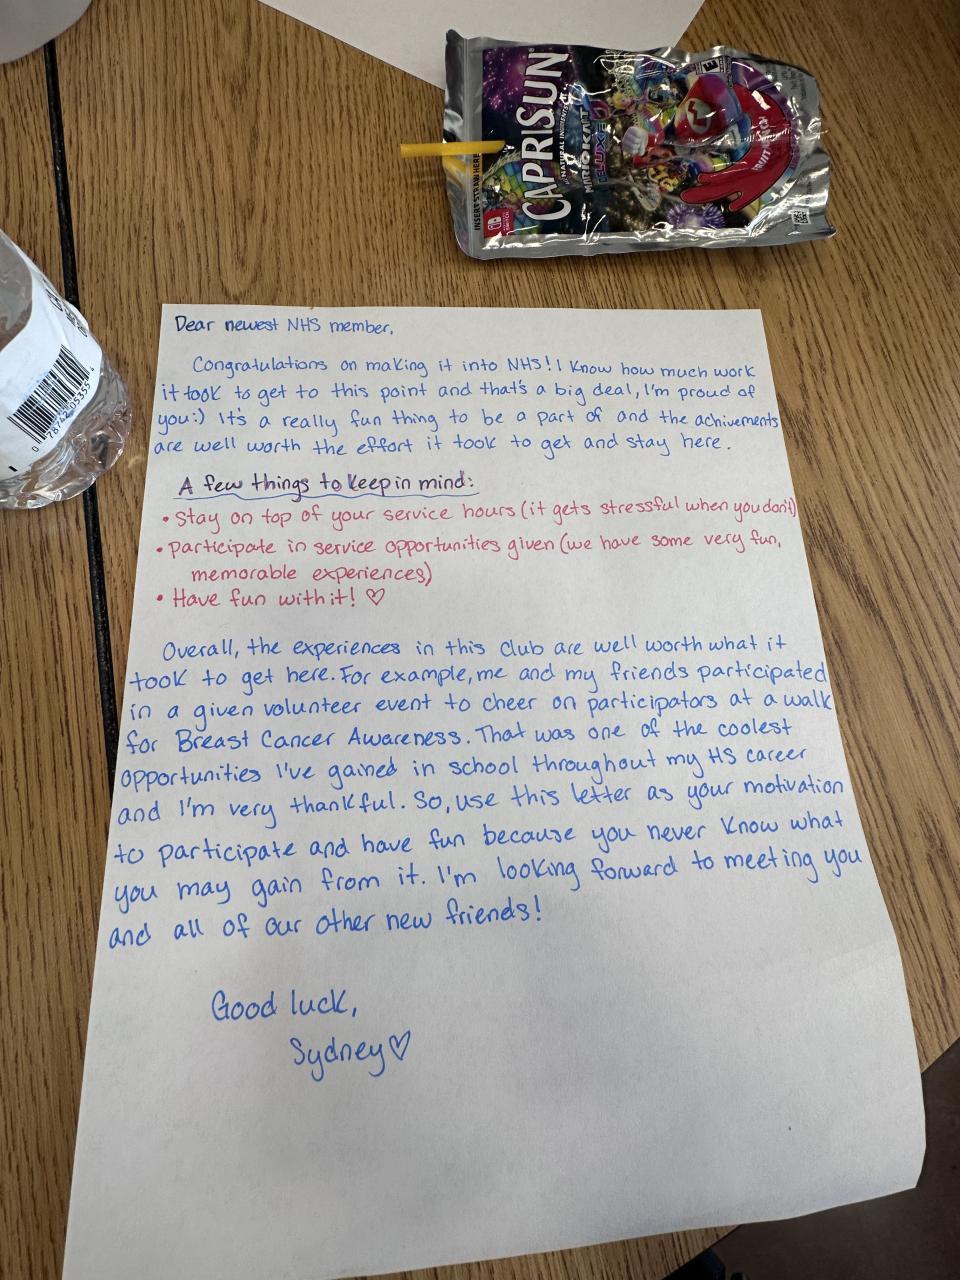 CAPRISUN
NATURAL INGREDIENTS
MARIO KART
DELUXE
INSERT STRAW HERE
SWITCH
E
Dear newest NHS member,
Congratulations on making it into NHS! I know how much work
it took to get to this point and that's a big deal, I'm proud of
you:) It's a really fun thing to be a part of and the achivements
are well worth the effort it took to get and stay here.
A few things to keep in mind:
• Stay on top of your service hours (it gets stressful when you don't)
• Participate in service opportunities given (we have some very fun,
memorable experiences)
• Have fun with it! ♡
Overall, the experiences in this club are well worth what it
took to get here. For example, me and my friends participated
in a given volunteer event to cheer on participators at a walk
for Breast Cancer Awareness. That was one of the coolest
opportunities I've gained in school throughout my HS career
and I'm very thankful. So, use this letter as your motivation
to participate and have fun because you never know what
you may gain from it. I'm looking forward to meeting you
and all of our other new friends!
Good luck,
Sydney ♡